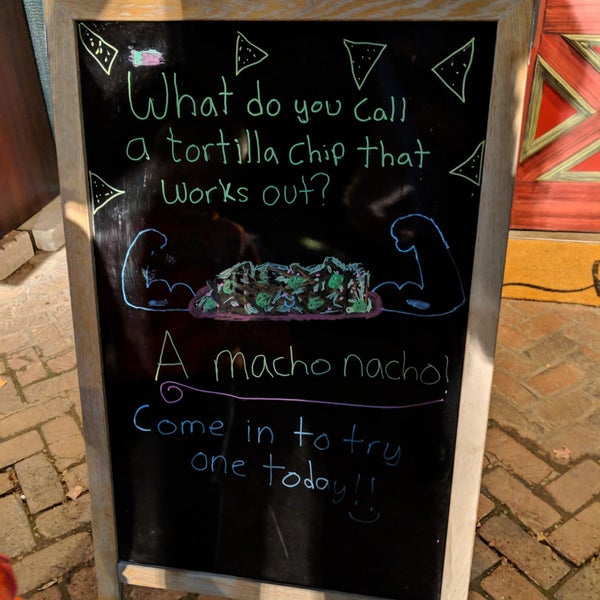 What do you call
a tortilla chip that
works out?
A macho nacho!
Come in to try
one today!!